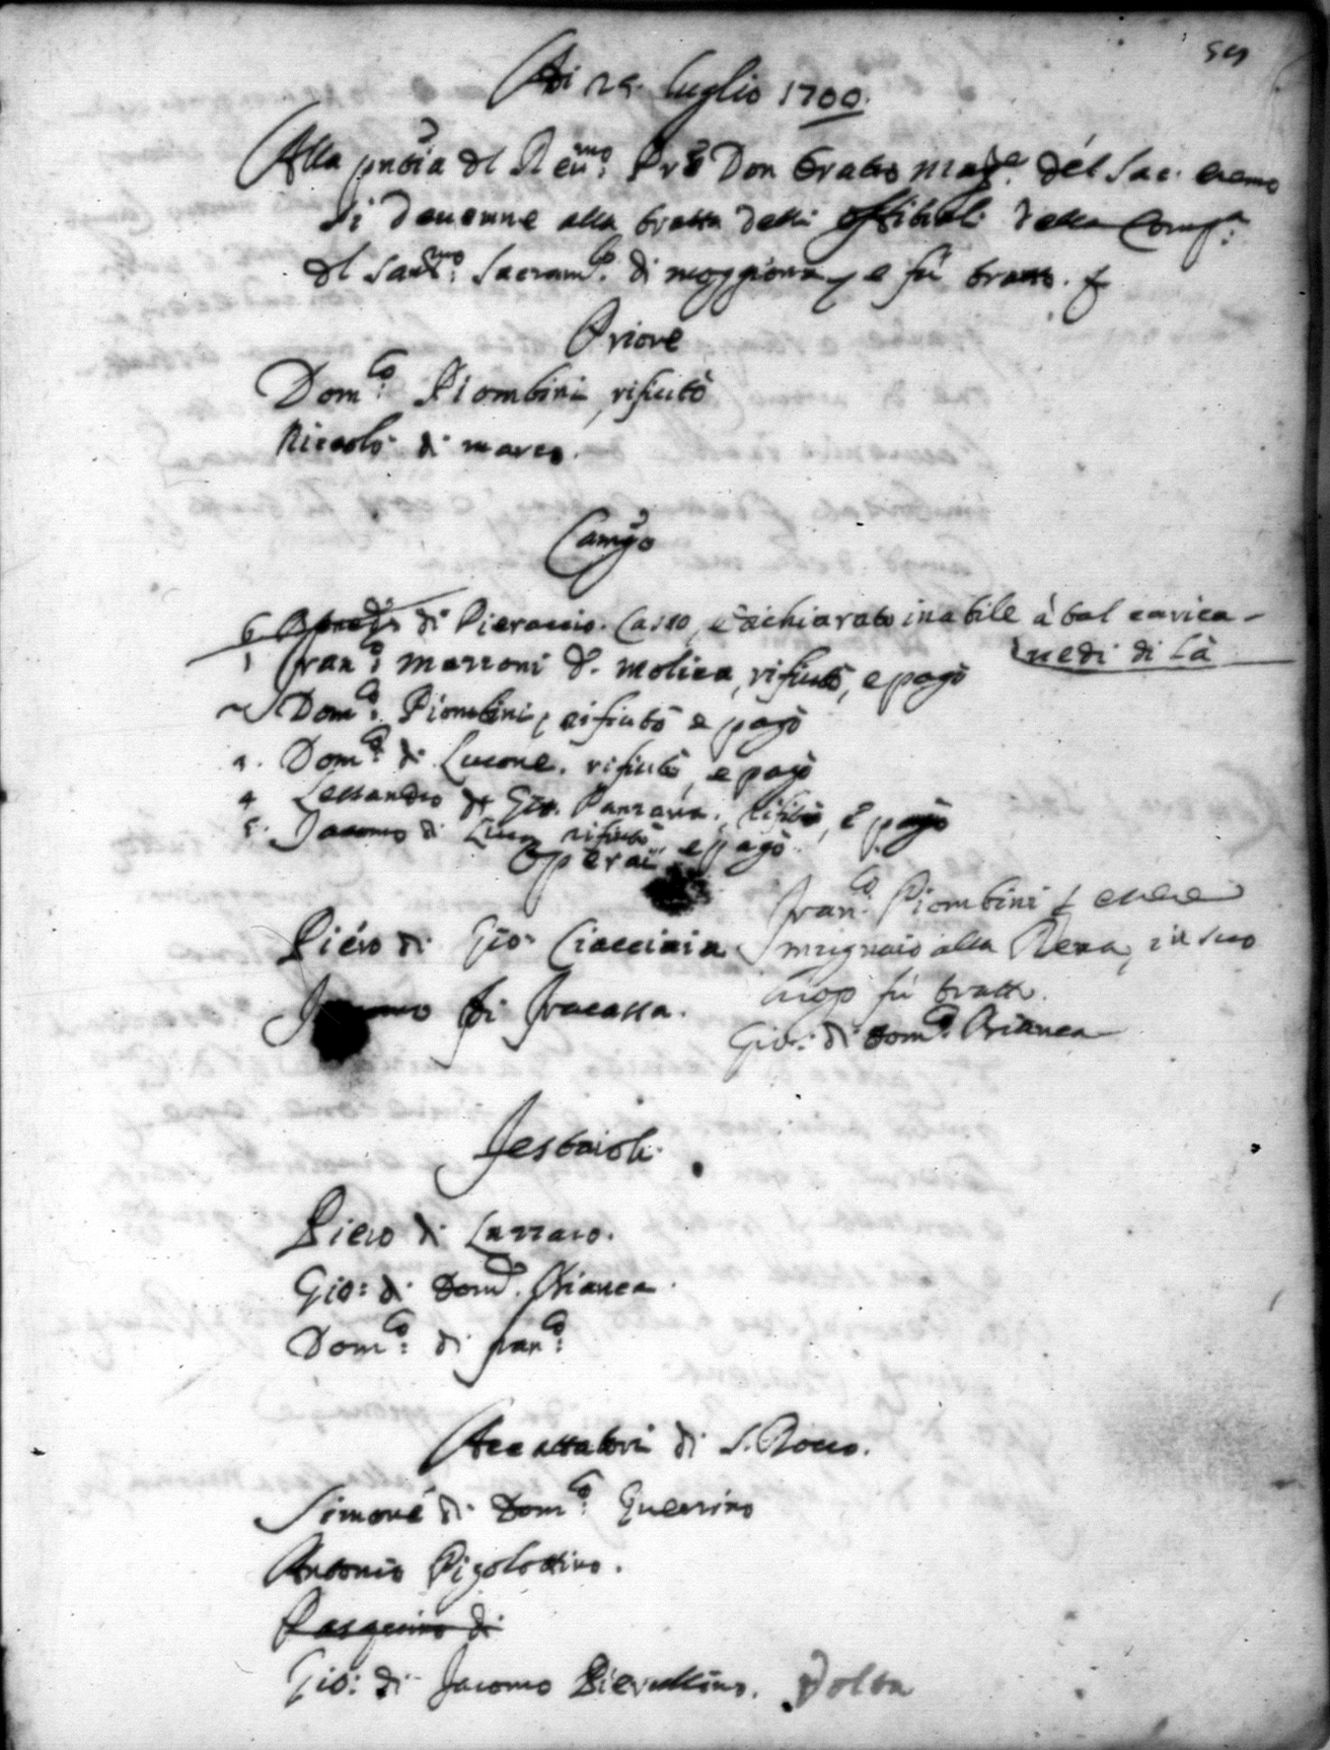 Adi 25 luglio 1700.
Alla pn̄tia dl Reu.mo Prē Don del Sac: eremo
si deuenne alla tratta delli offitiali della Comp.a
dl San.mo Sacram.to di moggiona, e fù tratto. p
Priore
Dom.co Piombini, rifiutò
Niccolò di marco.
Camgo
6 di Pieraccio. Casso, e dichiarato inabile à tal carica
uedi di là
1 Fran.co marzoni d. molica, rifiutò, e pagò
Dom.co Piombini, rifiutò e pagò
3. Dom.co di Lucone. rifiutò, e pagò
4 Lessandro di Gio. Panzana, rifiutò, e pagò
5. Jacomo di Luca rifiutò, e pagò.
Operai
Piero di Gio: Ciacciaia
Jacomo di Fracassa.
Fran.co Piombini p essere
mugnaio alla Rena, in suo
luogo fù tratto.
Gio: di Dom.co Bianca
Festaioli.
Piero di Lazzaro.
Gio: di Dom.co Bianca.
Dom.co di fran.co
Accattatori di S. Rocco.
Simone di Dom.co Guerrino
Antonio Pigolottino.
Pasquino di
Gio: di Jacomo Pierottino. Volta